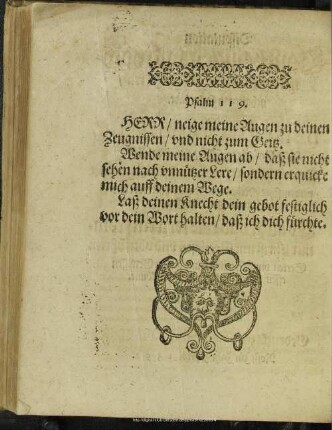 Psalm 119.
HERR/ neige meine Augen zu deinen
Zeugnissen/ vnd nicht zum Geitz.
Wende meine Augen ab/ daß sie nicht
sehen nach vnnützer Lere/ sondern erquicke
mich auff deinem Wege.
Laß deinen Knecht dein gebot festiglich
vor dein Wort halten/ daß ich dich fürchte.